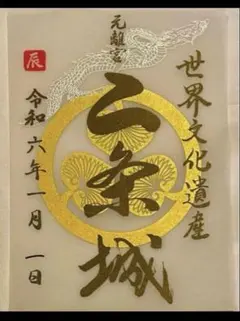 世界文化遺産
元離宮
二条城
辰
令和六年一月一日